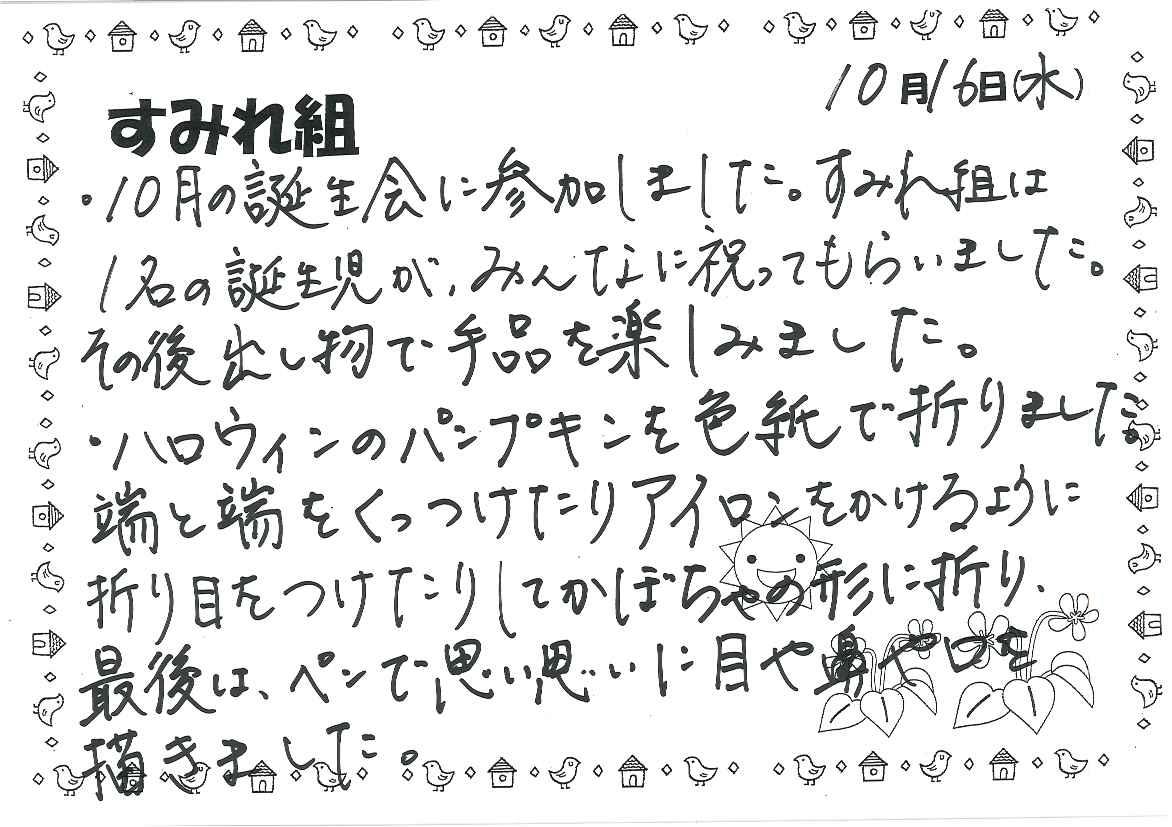 10月16日(水)
すみれ組
・10月の誕生会に参加しました。すみれ組は
1名の誕生児が、みんなに祝ってもらいました。
その後出し物で手品を楽しみました。
・ハロウィンのパンプキンを色紙で折りました。
端と端をくっつけたりアイロンをかけるように
折り目をつけたりしてかぼちゃの形に折り、
最後は、ペンで思い思いに目や鼻や口を
描きました。